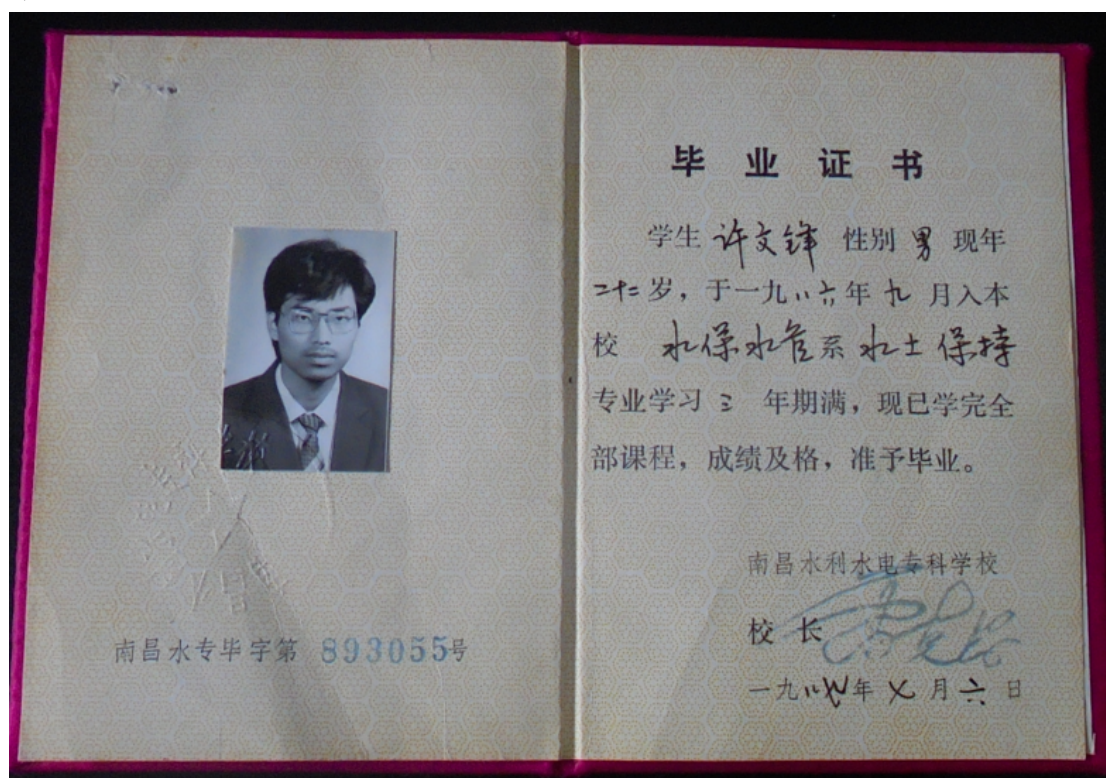 南昌水专毕字第 893055号
毕业证书
学生 许文锋 性别 男 现年
二十二岁，于一九八六年 九 月入本
校 水保水管系 水土保持
专业学习 三 年期满，现已学完全
部课程，成绩及格，准予毕业。
南昌水利水电专科学校
校 长
一九八九年 七 月 六 日